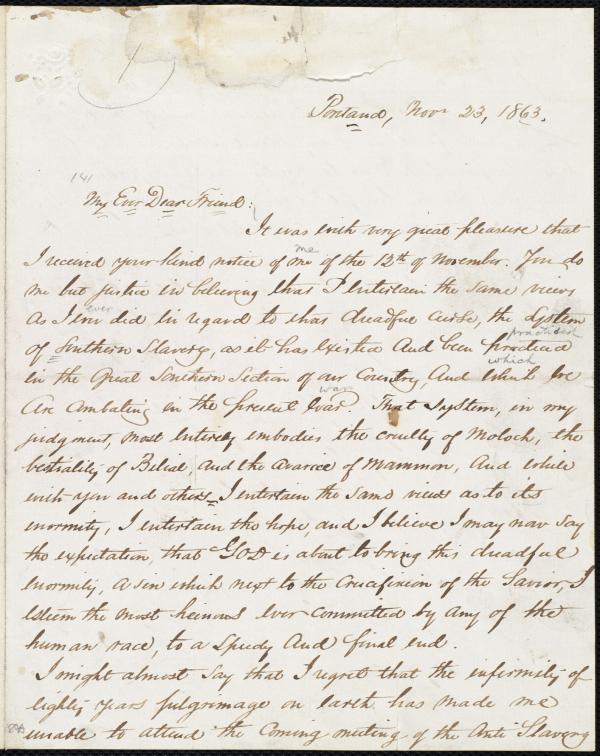 Portland, Novr 23, 1863.
141
My Ever Dear Friend:
It was with very great pleasure that
me
I received your kind notice of me of the 12th of November. You do
me but justice in believing that I entertain the same views
ever
As I ever did in regard to that dreadful curse, the system
practised
of Southern Slavery, as it has existed And been practiced
which
in the Great Southern Section of our Country, And which we
war
Are Combating in the present War. That System, in my
judgment, most entirely embodies the cruelty of Moloch, the
bestiality of Belial, and the avarice of Mammon, And while
with you and others I entertain the same views as to its
enormity, I entertain the hope, and I believe I may now say
the expectation, that GOD is about to bring this dreadful
enormity, a sin which next to the Crucifixion of the Savior, I
esteem the most heinous ever committed by any of the
human race, to a Speedy And final end.
I might almost say that I regret that the infirmity of
eighty years pilgrimage on earth has made me
unable to attend the Coming meeting of the Anti Slavery